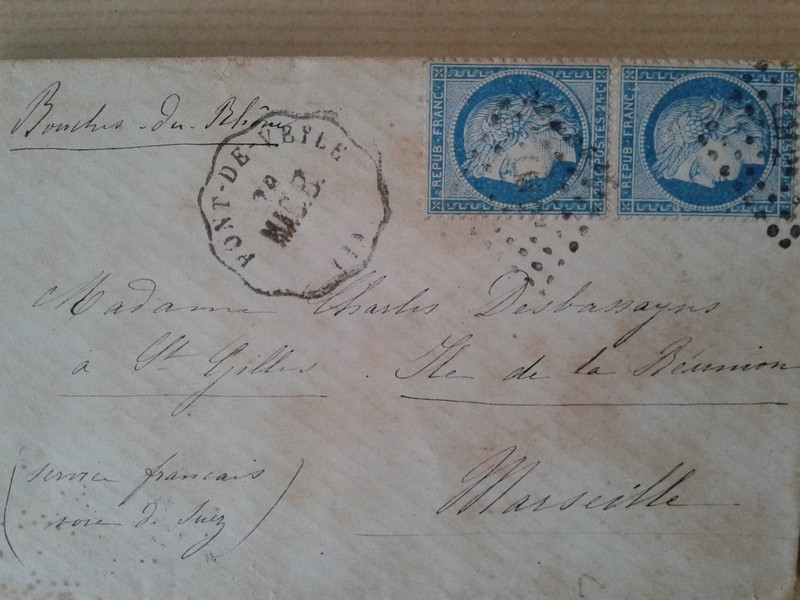 Bouches-du-Rhône
PONT-DE-VEYLE
(1)
REPUB. FRANC.
POSTES 25c
REPUB. FRANC.
POSTES
Madame Charles Desbassayns
à St Gilles . Ile de la Réunion
Marseille
(service français
voie de Suez)